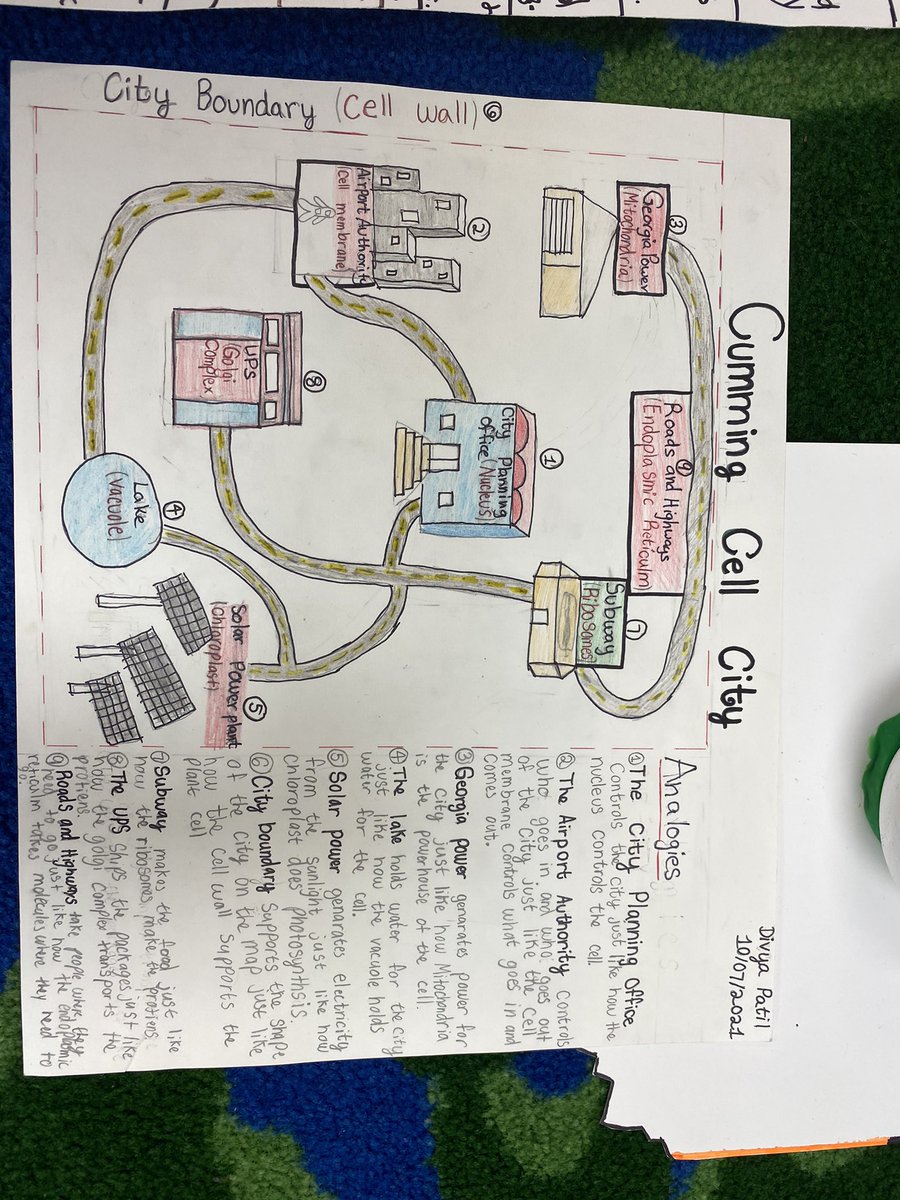 Cumming Cell City
Divya Patil
10/07/2021
City Boundary (Cell wall) ⑥
③
Georgia Power
(Mitochondria)
②
Airport Authority
(Cell membrane)
⑨
Roads and Highways
(Endoplasmic Reticulm)
①
City Planning
office (Nucleus)
⑧
UPS
(Golgi
Complex
⑦
Subway
(Ribosomes)
④
Lake
(Vacuole)
⑤
Solar Power plant
(chloroplast)
Analogies
①The City Planning Office
Controls the city just like how the
nucleus controls the cell.
② The Airport Authority Controls
who goes in and who goes out
of the city just like the Cell
membrane controls what goes in and
comes out.
③Georgia power genarates power for
the city just like how Mitochondria
is the powerhouse of the cell.
④The lake holds water for the city
just like how the vacuole holds
water for the cell.
⑤ Solar power genarates electricity
from the sunlight just like how
chloroplast does photosynthisis.
⑥City boundary Supports the shape
of the city on the map just like
how the cell wall supports the
plant cell
⑦Subway makes the food just like
how the ribosomes make the protiens.
⑧ The UPS ships the packages just like
how the golgi complex transports the
protiens.
⑨ Roads and Highways take people where they
need to go just like how the endoplasmic
reticulm takes molecules where they need to
go.